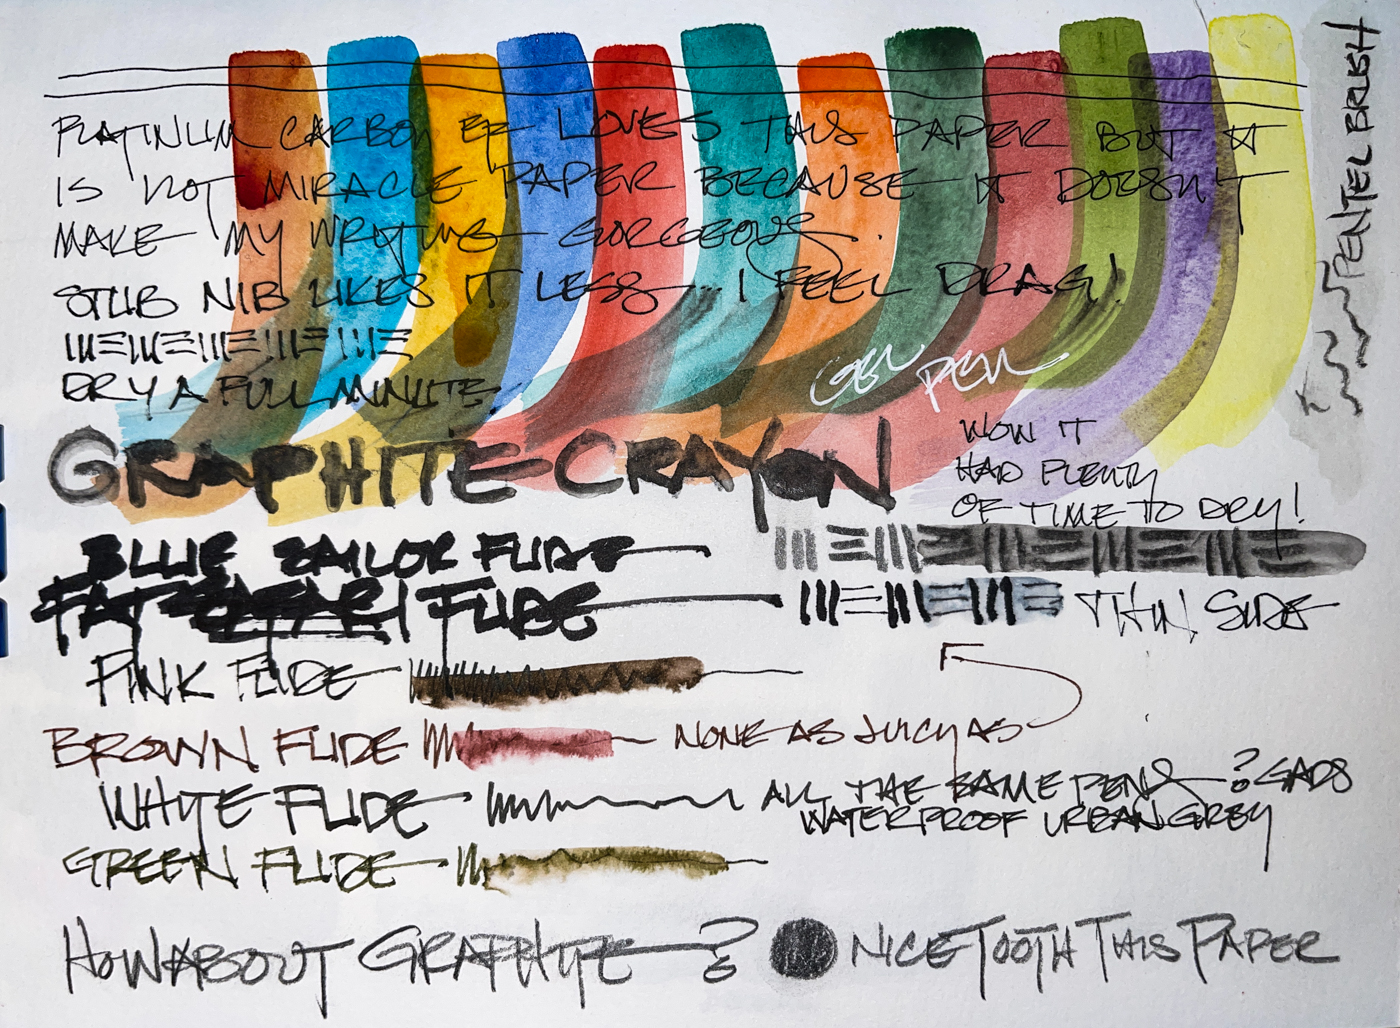 PLATINUM CARBON EF LOVES THIS PAPER BUT IT
IS NOT MIRACLE PAPER BECAUSE IT DOESN'T
MAKE MY WRITING GORGEOUS..
STUB NIB LIKES IT LESS... I FEEL DRAG!
DRY A FULL MINUTE.
PENTEL BRUSH
GEL PEN
GRAPHITE CRAYON
WOW IT
HAD PLENTY
OF TIME TO DRY!
BLUE SAILOR FUDE
FAT FUDE
THIN SIDE
PINK FUDE
BROWN FUDE
NONE AS JUICY AS
WHITE FUDE
ALL THE SAME PENS? GADS
WATERPROOF URBAN GREY
GREEN FUDE
HOW ABOUT GRAPHITE?
NICE TOOTH THIS PAPER